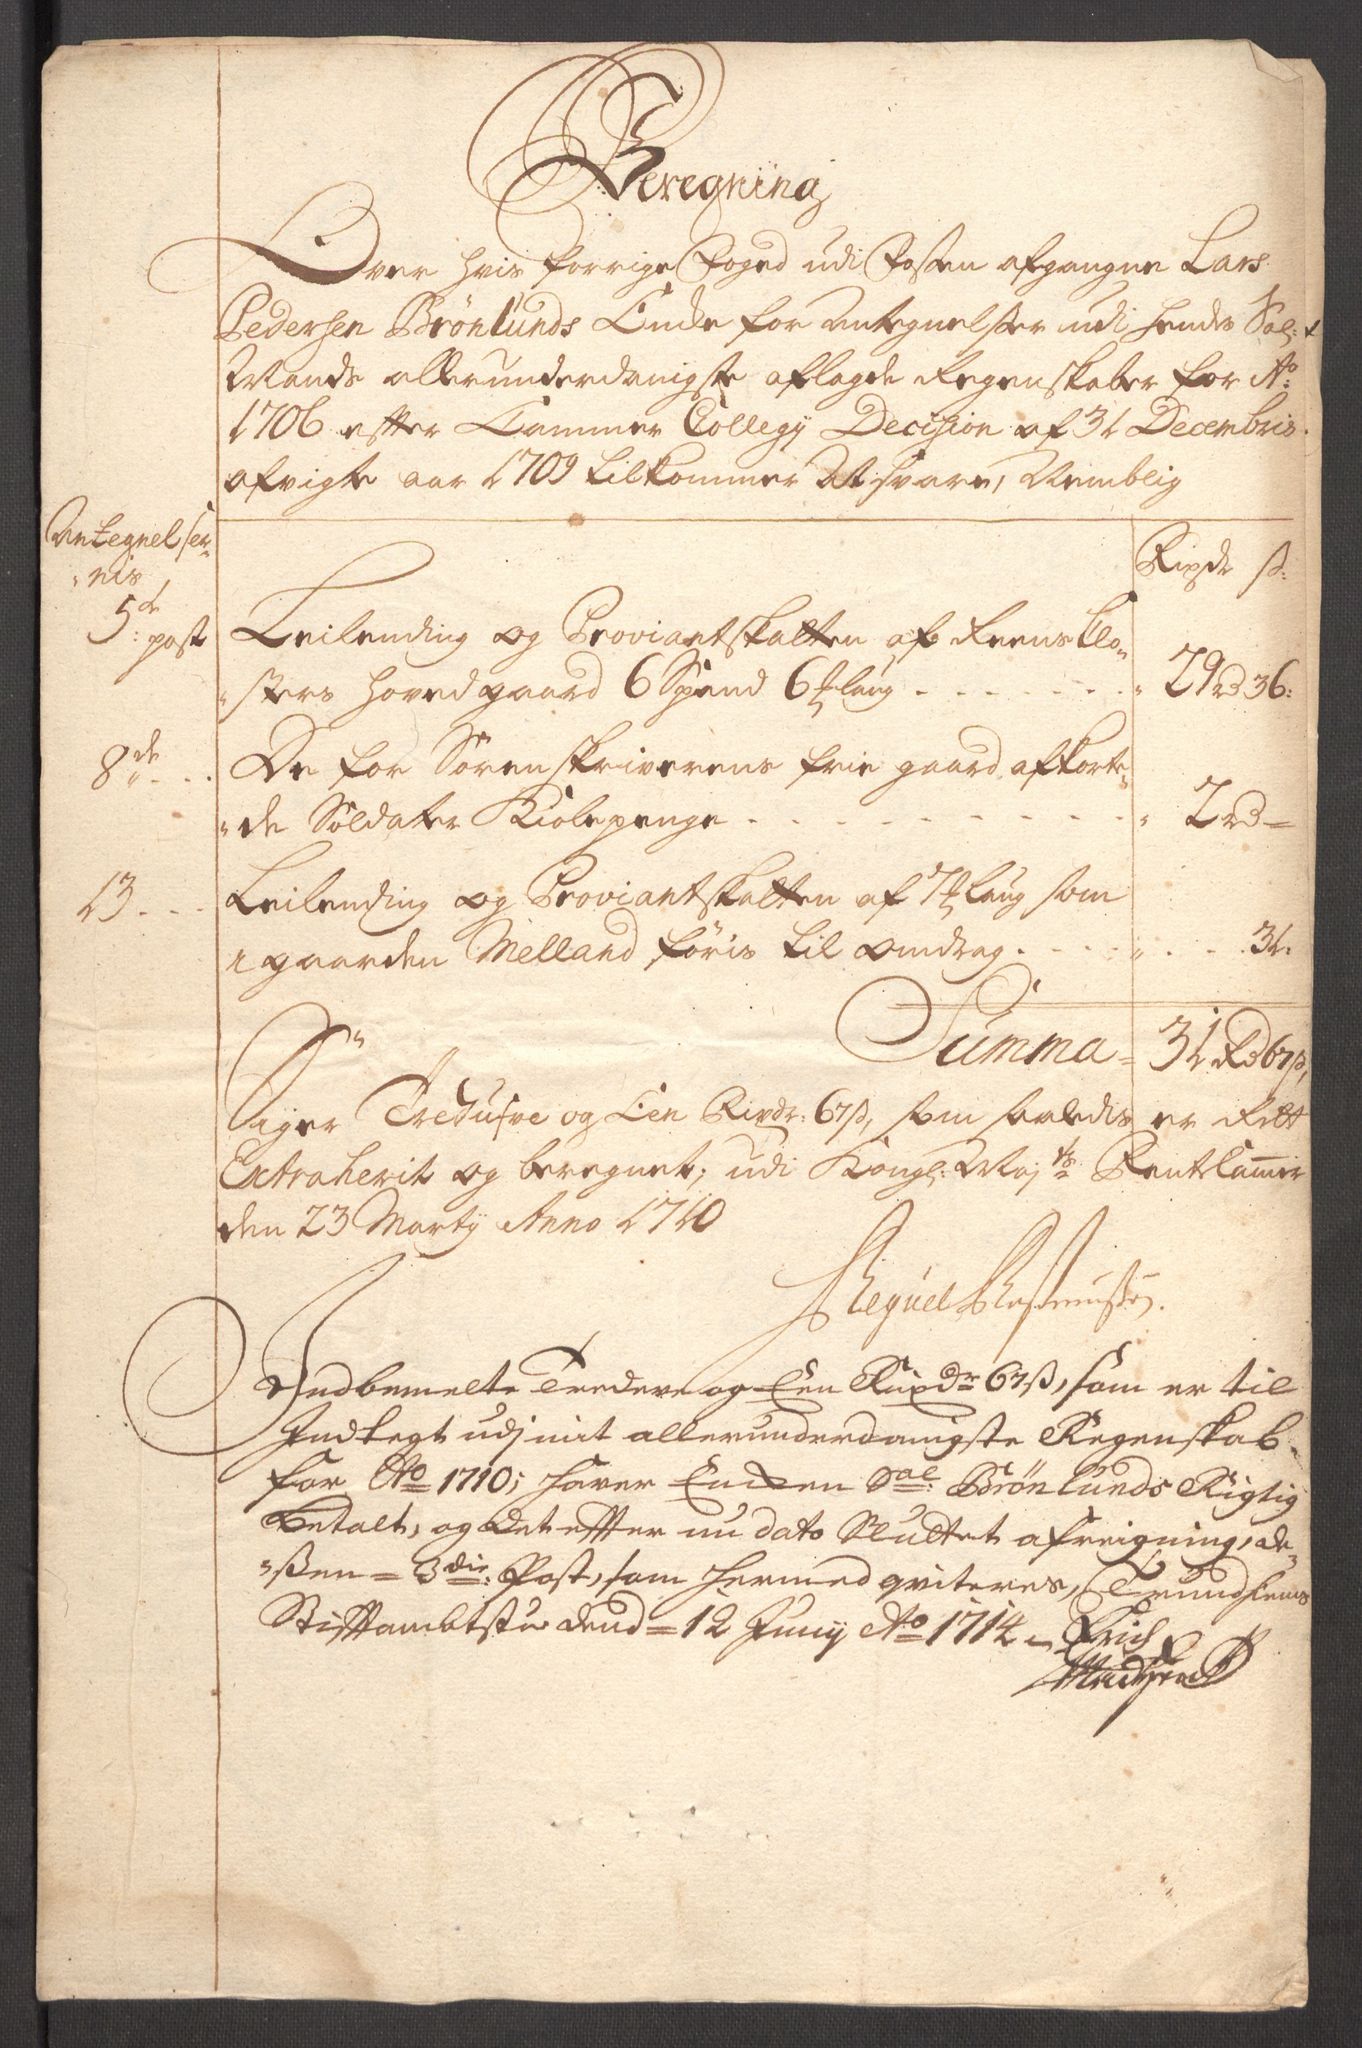 Beregning
Over hvis forrige Foged udi Fosen afgangne Lars
Pedersen Brönlunds Encke for Antegnelser udi hendes Sal:
Mands allerunderdanigste aflagde Regenskaber for Ao:
1706 efter Cammer Collegij Decision af 31 Decembris
afvigte aar 1709 tilkommer at svare, Nemblig
Antegnelser-
nis
Rixdr ß:
5de post Leilending og Proviantskatten af Reensklo-
sters hovedgaard 6 Spand 6 laug . . . . . . . 29 rd 36:
8de . . . De for Sörenskriverens frie gaard afkorte-
de Soldater Kiolepenge . . . . . . . . . . 2 rd -
13 . . . Leilending og Proviantskatten af 7 laug som
i gaarden Melland föris til omdrag . . . . . . 31:
Summa - 31 Rd 67 ß,
Siger Tredusve og Een Rixdr: 67 ß, som saaledis er Rett
Extraherit og beregnet; udi Kongl: Maj ts Rentkamer
den 23 Martij Anno 1710
Rasmussen.
Indbemelte Tredeve og Een Rixdr 67 ß, som er til
Indtegt udj mit allerunderdanigste Regenskab
for Ao 1710; hafver Encken Sal: Brönlunds Rigtig
Betalt, og det efter nu dato Sluttet afreigning, de-
ßen = 3die: Post, som hermed qviteres, Trundhiems
Stiftambtstue dend = 12 Junij Ao 1714 Erich
Madtzen